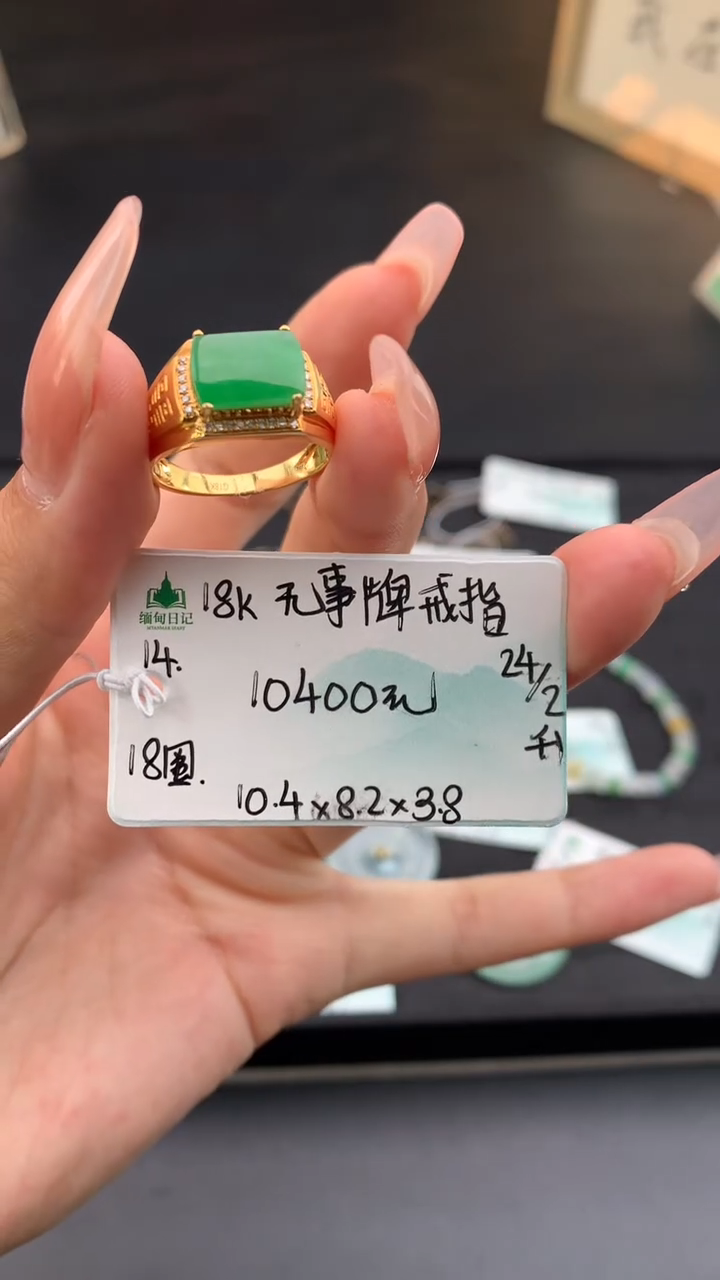 缅甸日记
18K 无事牌戒指
14.
10400元
24/2
18圈.
10.4×8.2×3.8